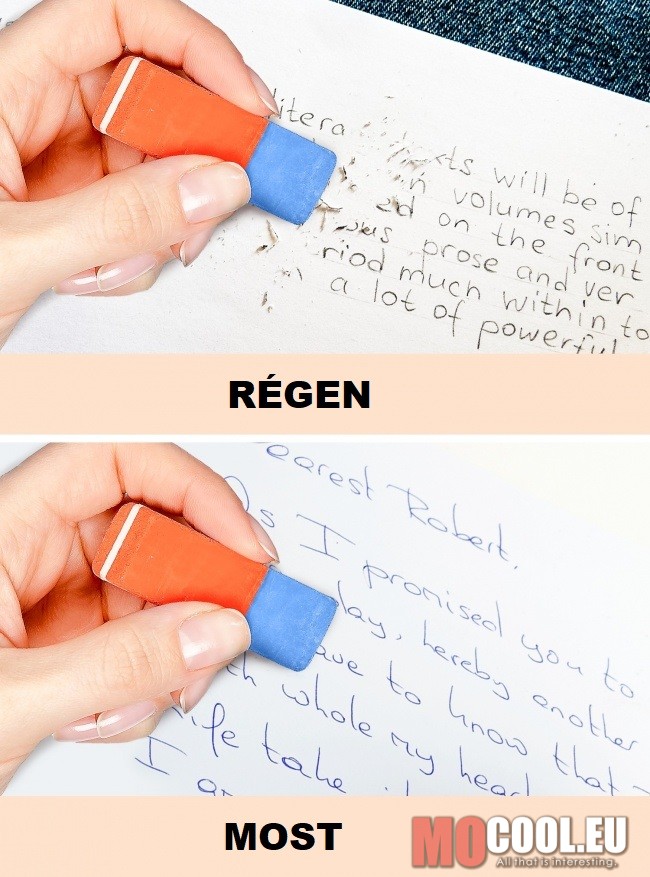 litera
ts will be of
n volumes sim
ed on the front
ous prose and ver
riod much within to
a lot of powerful
RÉGEN
earest Robert,
As I promised you to
day, hereby another
ave to know that
th whole my heart
life take
I a
MOST
MOCOOL.EU
All that is interesting.